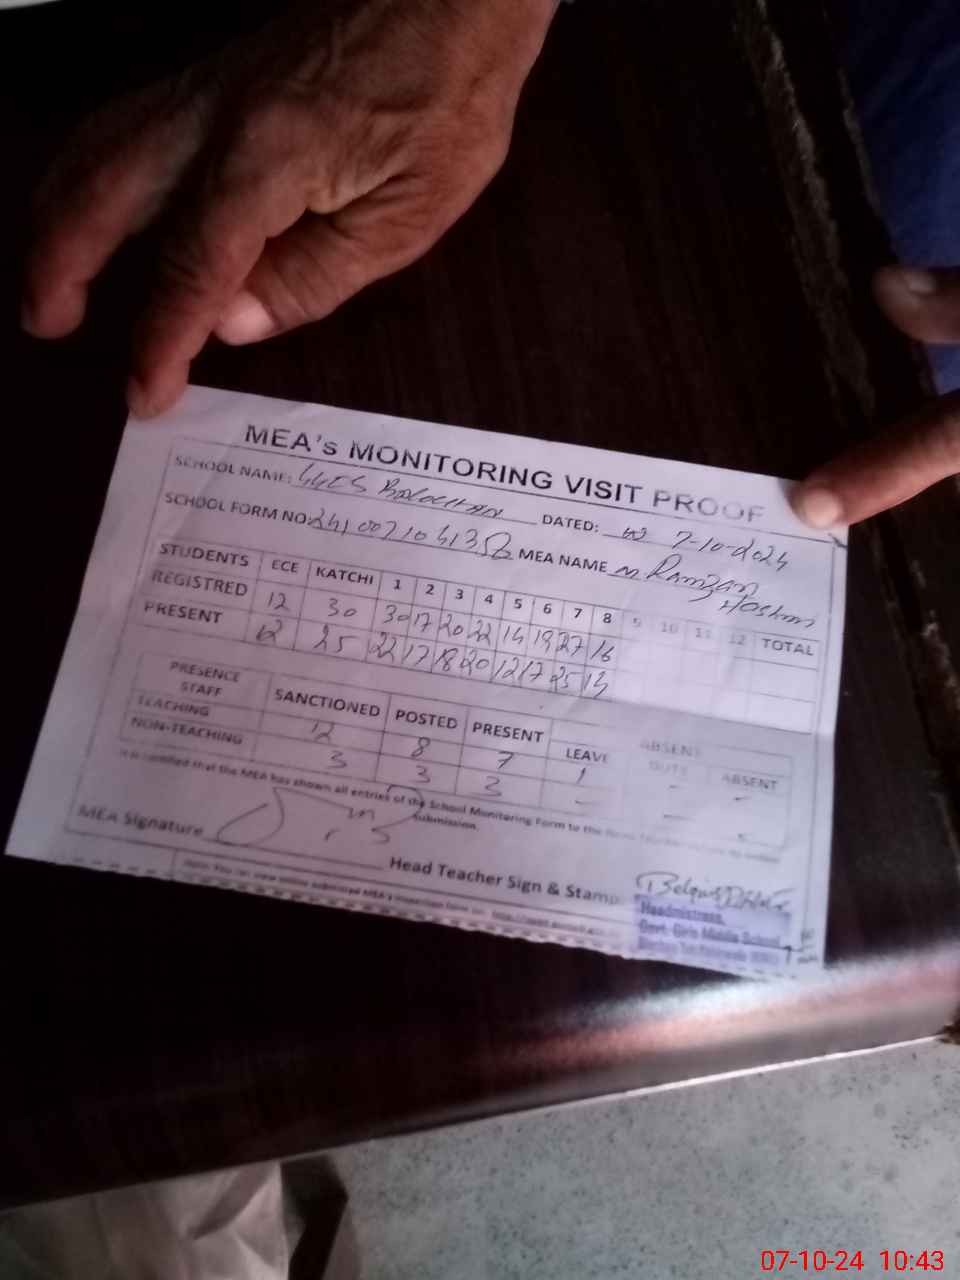 MEA's MONITORING VISIT PROOF
SCHOOL NAME: DATED: 7-10-2024
SCHOOL FORM NO: MEA NAME M Ramzan
Hashmi
STUDENTS ECE KATCHI 1 2 3 4 5 6 7 8 9 10 11 12 TOTAL
REGISTRED 12 30 30 17 20 22 14 19 27 16
PRESENT 12 25 22 17 18 20 12 17 25 14
PRESENCE STAFF SANCTIONED POSTED PRESENT LEAVE ABSENT
DUTY ABSENT
TEACHING 12 8 7 1 - -
NON-TEACHING 3 3 3 - - -
It is certified that the MEA has shown all entries of the School Monitoring Form to the
submission.
MEA Signature Head Teacher Sign & Stamp
Headmistress,
Govt. Girls Middle School
07-10-24 10:43